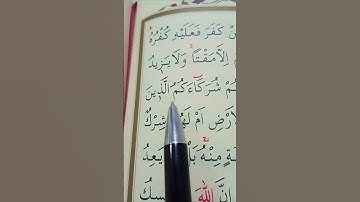 كَفَرَ فَعَلَيْهِ كُفْرُهُ
اِلَّا مَقْتًا وَلَا يَزِيدُ
شُرَكَاءَكُمُ الَّذِينَ
اَمْ لَهُمْ شِرْكٌ
مِنْهُ بَلْ يَعِدُ
اللّٰهَ